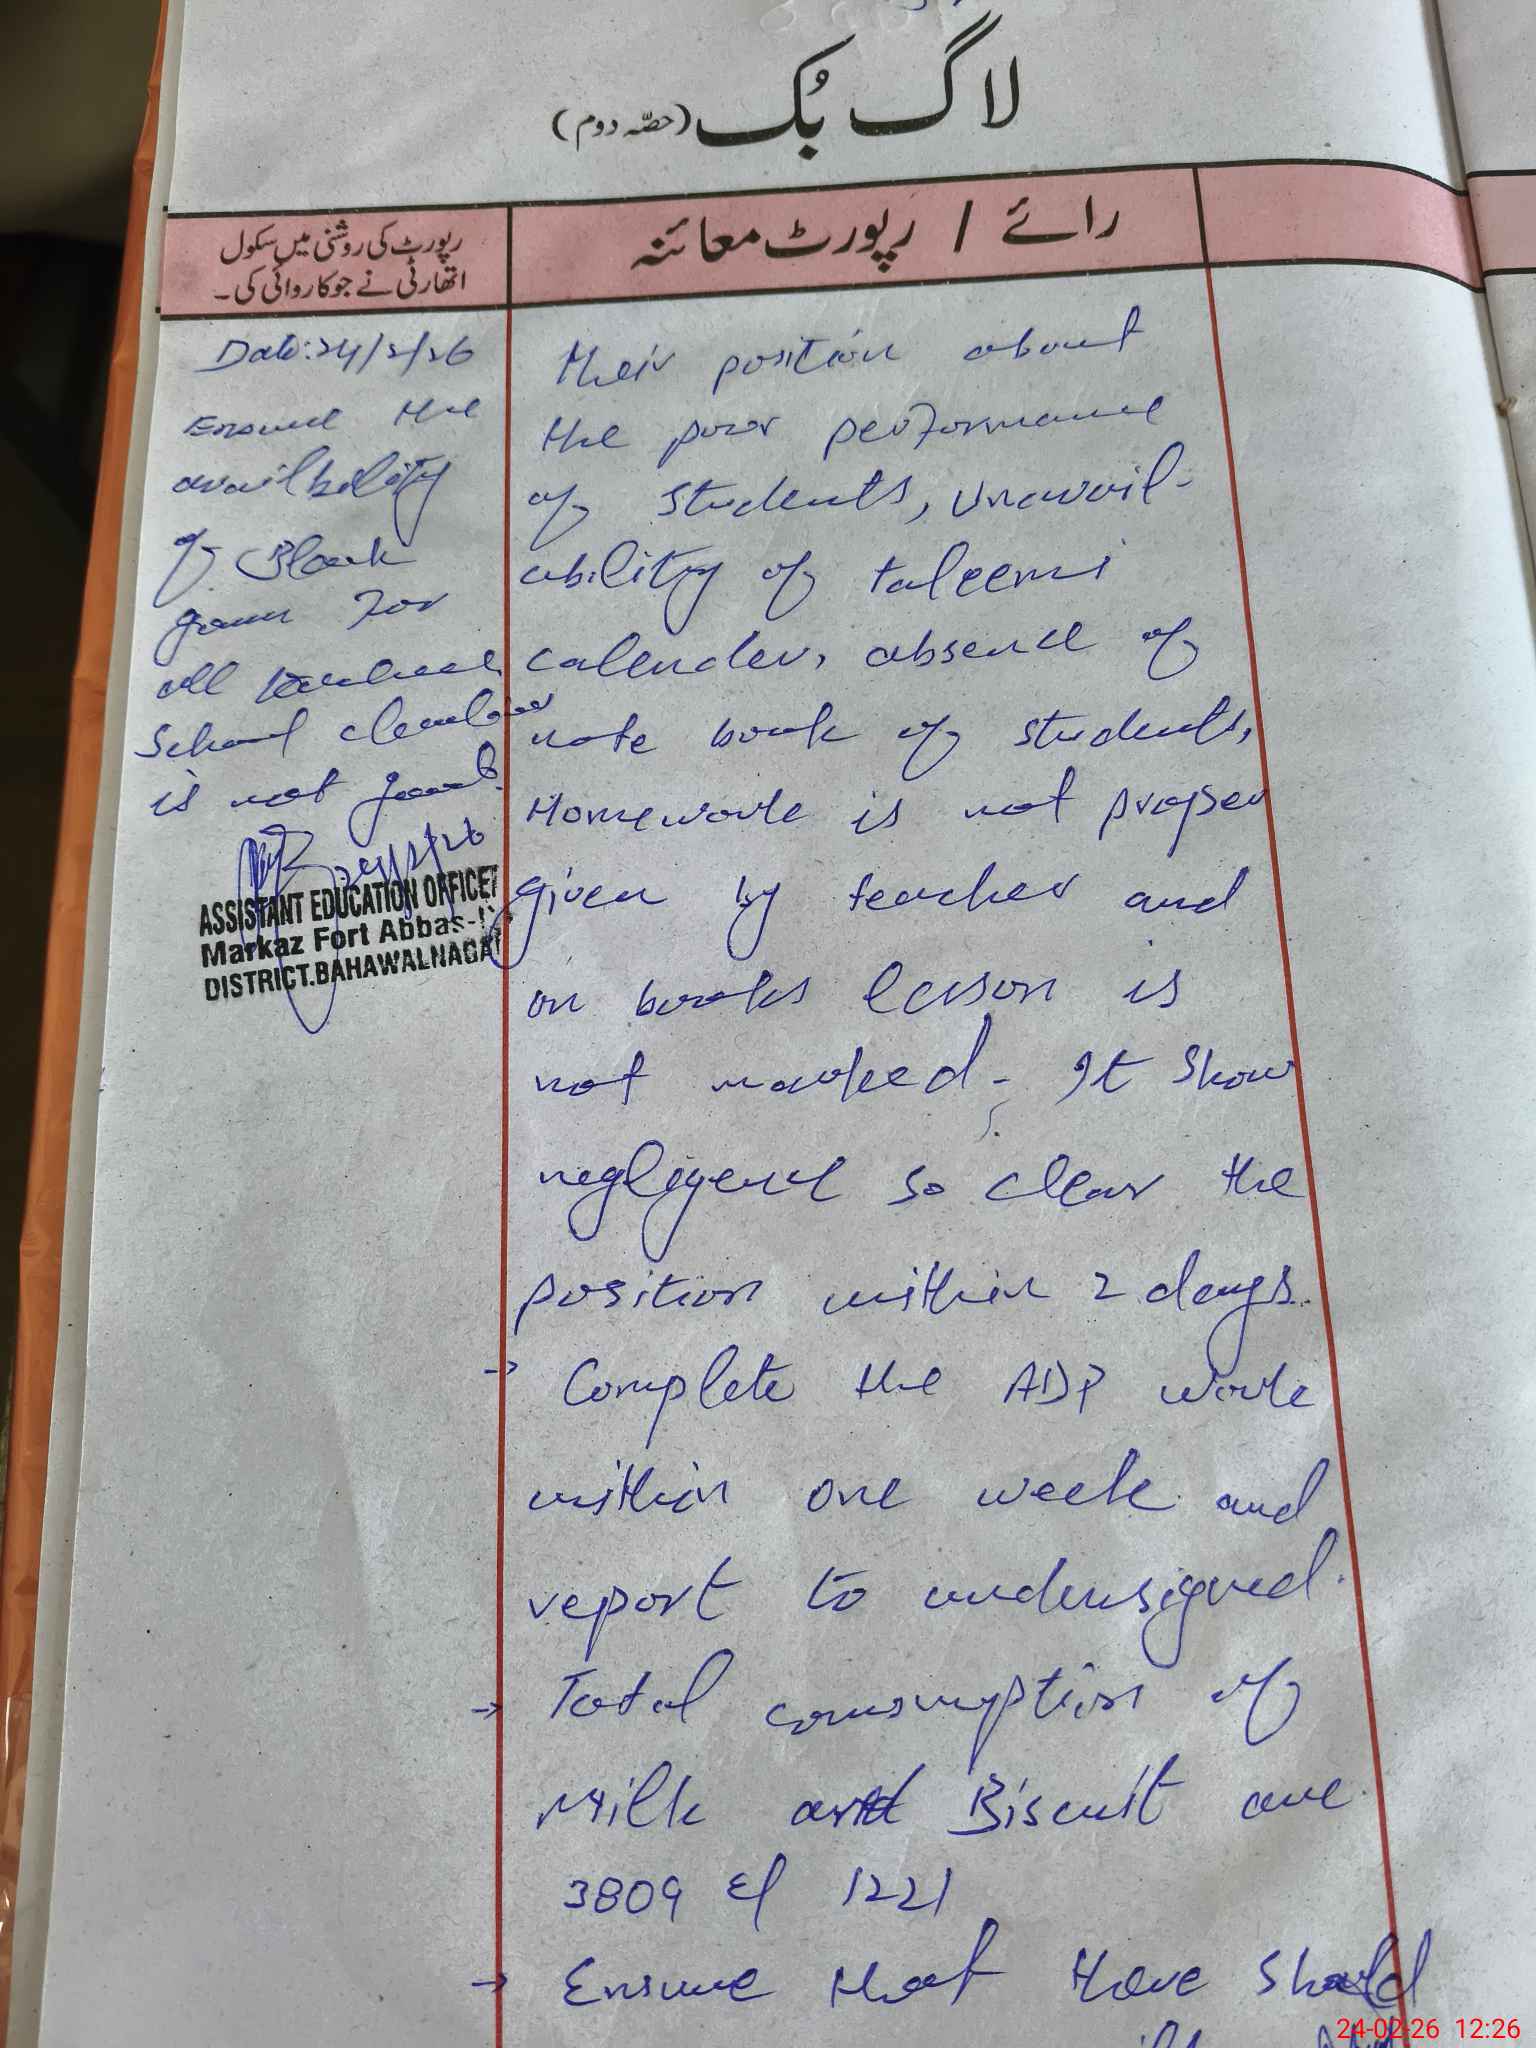 لاگ بُک (حصّہ دوم)
رائے / رپورٹ معائنہ
رپورٹ کی روشنی میں سکول
اتھارٹی نے جو کاروائی کی۔
Date: 24/2/26
Ensure the
availbility
of Black
gown for
all teachers
School
is not good.
24/2/26
ASSISTANT EDUCATION OFFICER
Markaz Fort Abbas-
DISTRICT.BAHAWALNAGAR
their position about
the poor performance
of students, unavail-
ability of taleemi
calender, absence of
note book of students,
Homework is not proper
given by teacher and
on books lesson is
not marked - It show
negligence so clear the
position within 2 days.
→ Complete the ADP work
within one week and
report to undersigned.
→ Total consumption of
Milk and Biscuit are
3809 & 1221
→ Ensure that there should
24-02-26 12:26